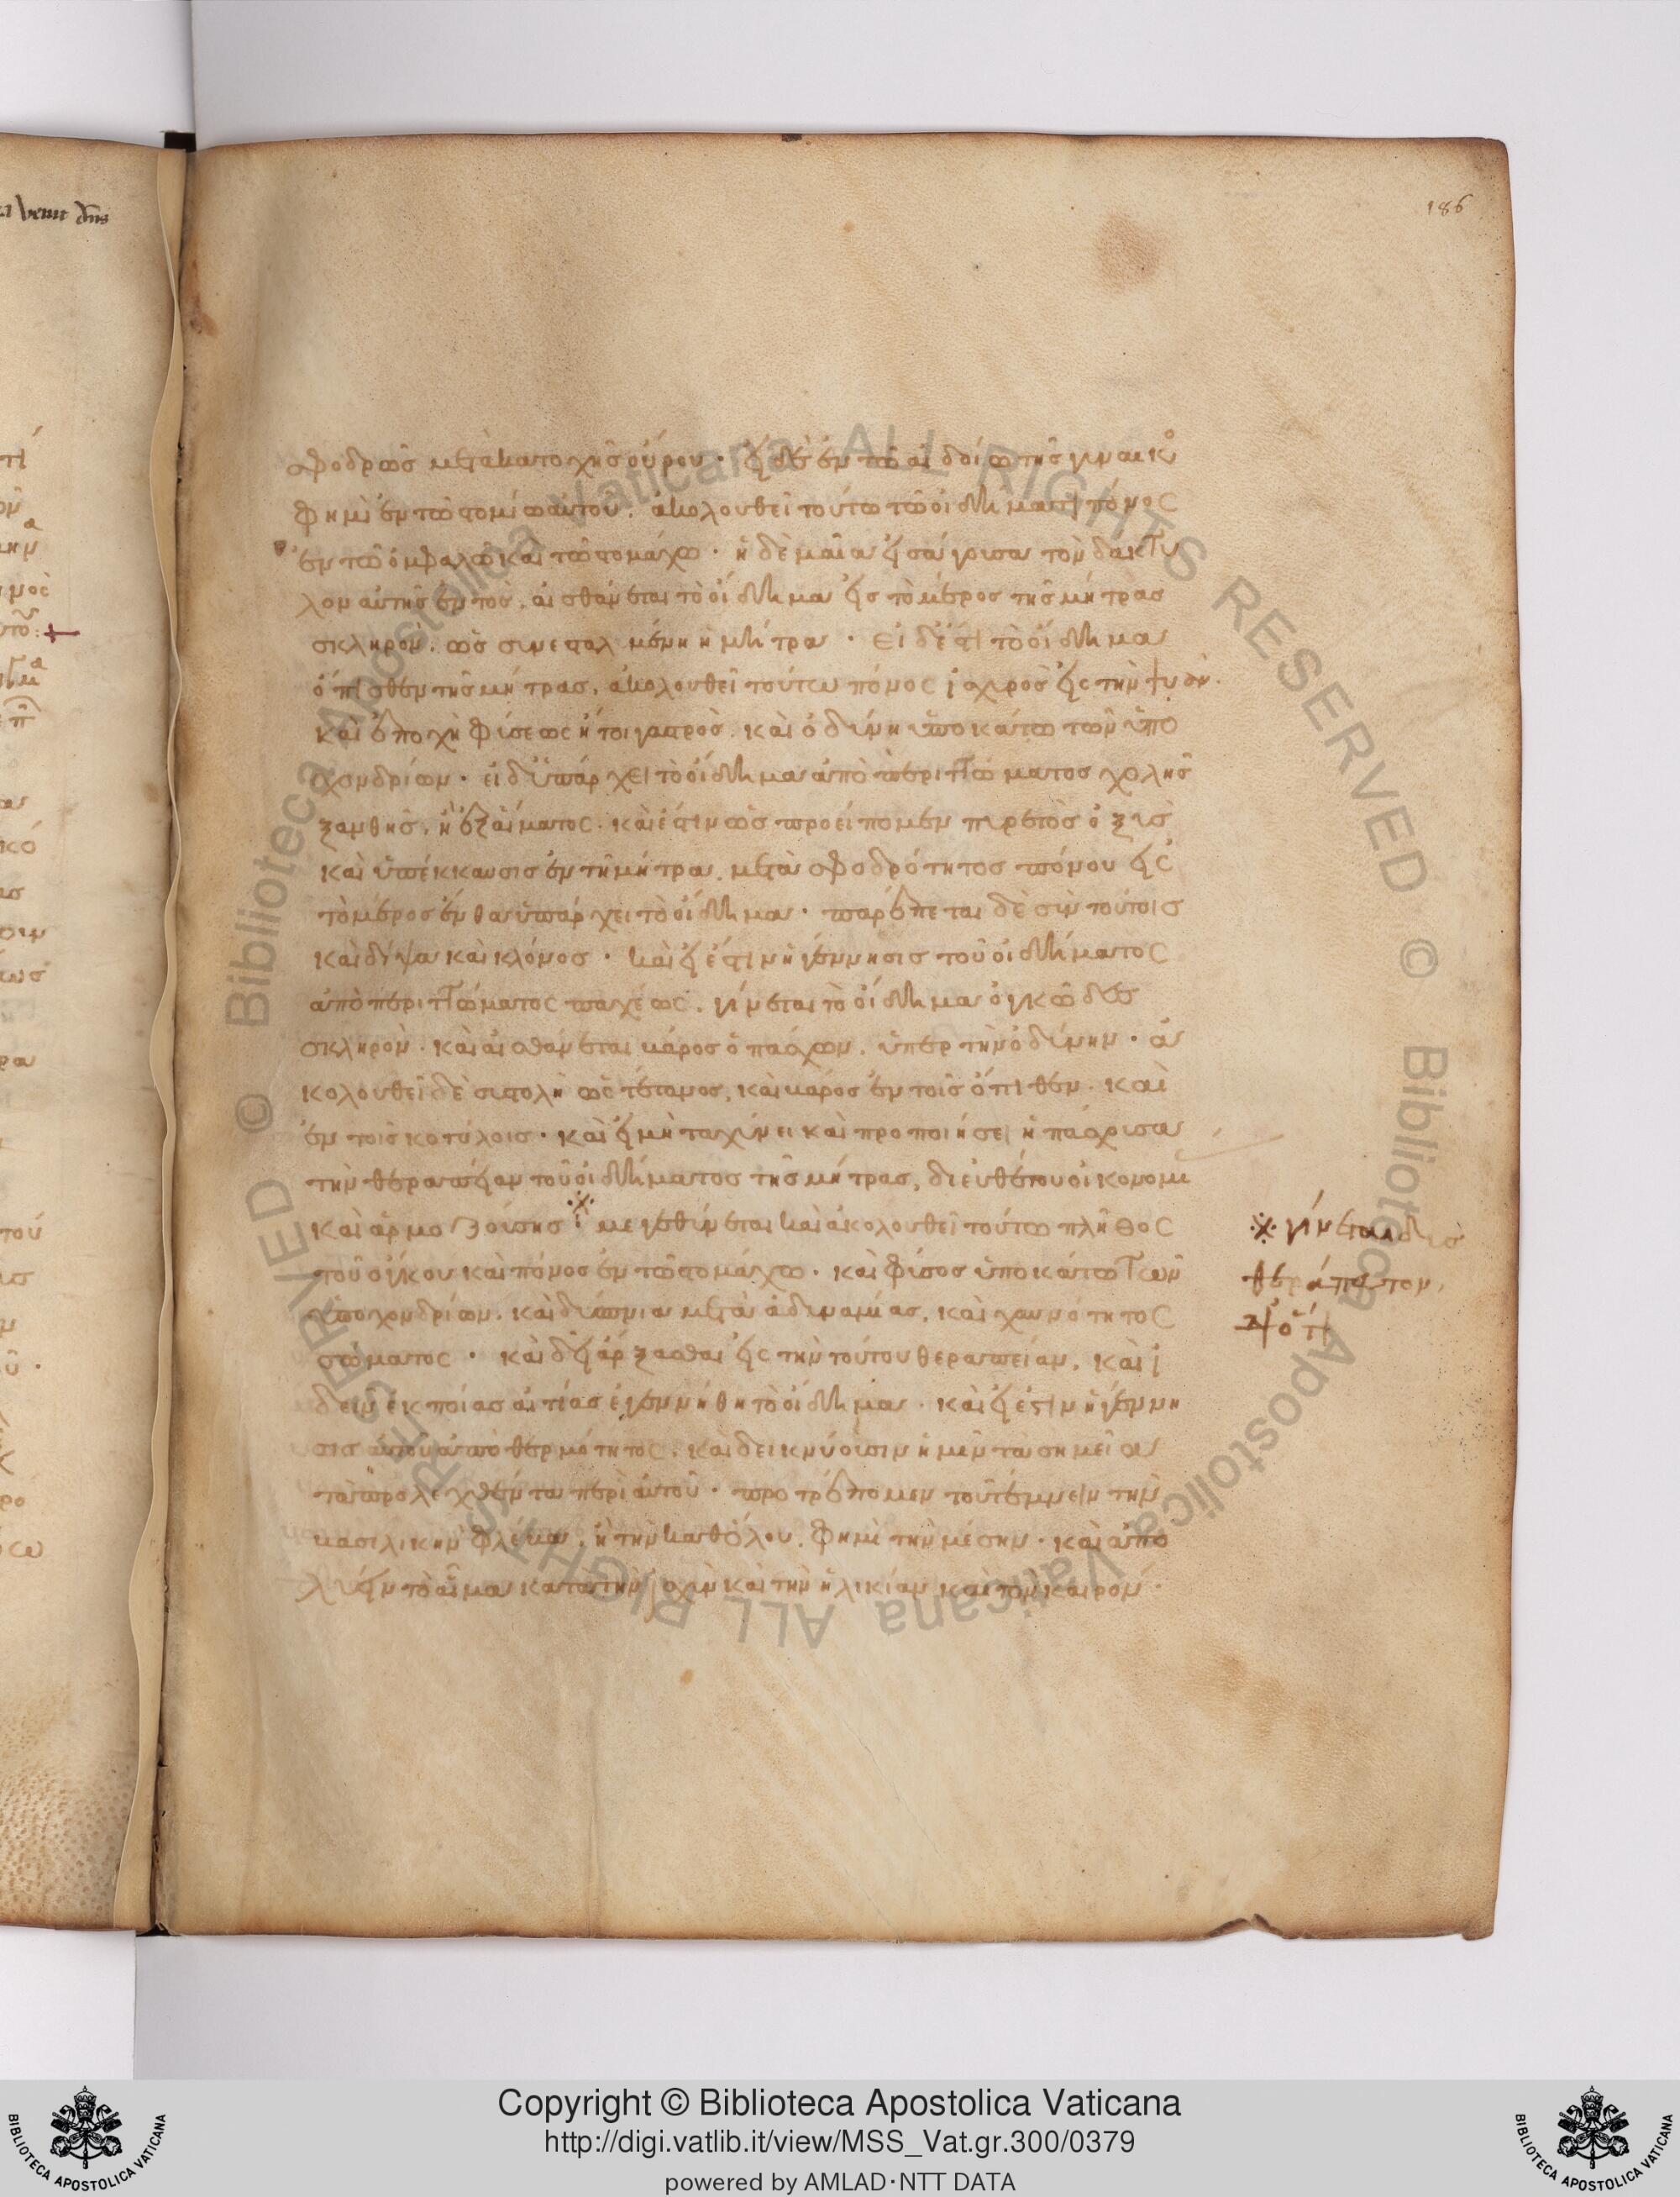 186
σφοδρῶς μετὰ κατοχῆς οὔρου · εἰ δὲ ἐν τῶ αἰδοίω τῆς γυναικὸ
φημὶ ἐν τῶ στομίω αὐτοῦ. ἀκολουθεῖ τούτω τῶ οἰδήματι πόνος
ἐν τῶ ὀμφαλῶ καὶ τῶ στομάχω · ἡ δὲ μαῖα εἰσαγρισα τὸν δάκτυ
λον αὐτῆς ἐντὸς, αἰσθάνεται τὸ οἴδημα εἰς τὸ μέρος τῆς μήτρας
σκληρὸν. ὡς συνεσταλμένη ἡ μήτρα · εἰ δέ ἐστι τὸ οἴδημα
ὄπισθεν τῆς μήτρας, ἀκολουθεῖ τούτω πόνος ἰσχυρὸς εἰς τὴν ψυὰν.
καὶ ἐποχὴ φύσεως ἤτοι γαστρὸς. καὶ ὀδύνη ὑποκάτω τῶν ὑπο
χονδρίων · εἰ δὲ ὑπάρχει τὸ οἴδημα ἀπὸ περιττώματος χολῆς
ξανθῆς, ἢ ἐξ αἵματος. καὶ ἔστιν ὡς προείπομεν πυρετὸς ὀξὺς
καὶ ὑπέκκαυσις ἐν τῆ μήτρα, μετὰ σφοδρότητος πόνου εἰς
τὸ μέρος ἔνθα ὑπάρχει τὸ οἴδημα · παρέπεται δὲ σὺν τούτοις
καὶ δίψα καὶ κλόνος · καὶ εἰ ἔστιν ἡ γέννησις τοῦ οἰδήματος
ἀπὸ περιττώματος παχέως, γίνεται τὸ οἴδημα ὀγκῶδες
σκληρὸν. καὶ αἰσθάνεται βάρος ὁ πάσχων, ὑπὲρ τὴν ὀδύνην · ἀ
κολουθεῖ δὲ συστολὴ ὡς τέτανος, καὶ βάρος ἐν τοῖς ὄπισθεν. καὶ
ἐν τοῖς κοτύλοις · καὶ εἰ μὴ ταχύνει καὶ προποιήσει ἡ πάσχουσα
τὴν θεραπείαν τοῦ οἰδήματος τῆς μήτρας, δι' εὐθέτου οἰκονομι
καὶ ἁρμοζούσης ※ μεγεθύνεται καὶ ἀκολουθεῖ τούτω πλῆθος
τοῦ ὄγκου καὶ πόνος ἐν τῶ στομάχω · καὶ φύσος ὑποκάτω τῶν
ὑποχονδρίων. καὶ δύσπνοια μετὰ ἀδυναμίας, καὶ χαυνότητος
σώματος · καὶ δεῖ ἄρξασθαι εἰς τὴν τούτου θεραπείαν, καὶ ἰ
δεῖν ἐκ ποίας αἰτίας ἐγεννήθη τὸ οἴδημα. καὶ εἰ ἔστιν ἡ γέννη
σις αὐτοῦ ἀπὸ θερμότητος, καὶ δεικνύουσιν ἡμῖν τὰ σημεῖα
τὰ προλεχθέντα περὶ αὐτοῦ · προτρέπομεν τοῦ τέμνειν τὴν
βασιλικὴν φλέβα, ἢ τὴν καθόλου, φημὶ τὴν μέσην · καὶ ἀπο
λύειν τὸ αἷμα κατὰ τὴν ἰσχὺν καὶ τὴν ἡλικίαν καὶ τὸν καιρόν.
※ γίνεται δυσ
θεράπευτον,